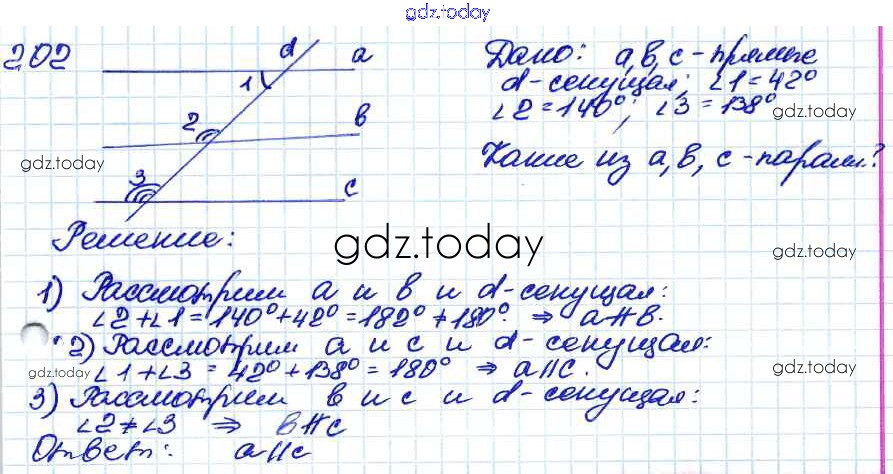 gdz.today
202
d a
1
2 b
3 c
Дано: a, b, c - прямые
d - секущая; ∠1 = 42°
∠2 = 140°; ∠3 = 138°
gdz.today
gdz.today
Какие из a, b, c - паралл.?
Решение:
gdz.today
1) Рассмотрим a и b и d - секущая:
∠2 + ∠1 = 140° + 42° = 182° ≠ 180° ⇒ a ∦ b.
2) Рассмотрим a и c и d - секущая:
∠1 + ∠3 = 42° + 138° = 180° ⇒ a || c.
gdz.today
gdz.today
3) Рассмотрим b и c и d - секущая:
∠2 ≠ ∠3 ⇒ b ∦ c
Ответ: a || c